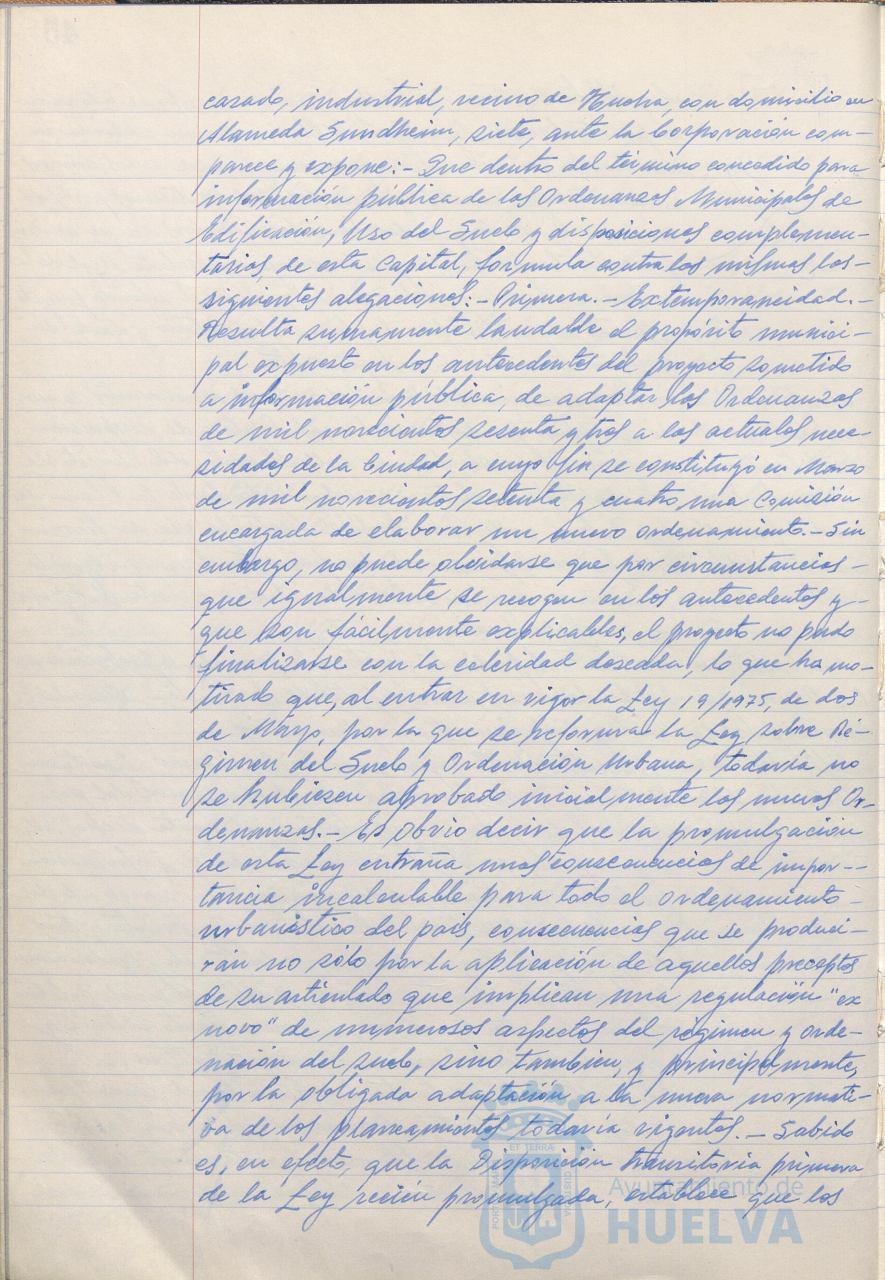 casado, industrial, vecino de Huelva, con domicilio en
Alameda Sundheim, siete, ante la Corporación com-
parece y expone:- Que dentro del término concedido para
información pública de las Ordenanzas Municipales de
Edificación, Uso del Suelo y disposiciones complemen-
tarias, de esta Capital, formula contra las mismas las-
siguientes alegaciones:- Primera.- Extemporaneidad.-
Resulta sumamente laudable el propósito munici-
pal expuesto en los antecedentes del proyecto sometido
a información pública, de adaptar las Ordenanzas
de mil novecientos sesenta y tres a las actuales nece-
sidades de la Ciudad, a cuyo fin se constituyó en Marzo
de mil novecientos setenta y cuatro una Comisión
encargada de elaborar un nuevo ordenamiento.- Sin
embargo, no puede olvidarse que por circunstancias-
que igualmente se recogen en los antecedentes y-
que son fácilmente explicables, el proyecto no pudo
finalizarse con la celeridad deseada, lo que ha mo-
tivado que, al entrar en vigor la Ley 19/1975, de dos
de Mayo, por la que se reforma la Ley sobre Ré-
gimen del Suelo y Ordenación Urbana, todavía no
se hubiesen aprobado inicialmente las nuevas Or-
denanzas.- Es obvio decir que la promulgación
de esta Ley entraña unas consecuencias de impor--
tancia incalculable para todo el ordenamiento-
urbanístico del país, consecuencias que se produci-
rán no sólo por la aplicación de aquellos preceptos
de su articulado que implican una regulación "ex
novo" de numerosos aspectos del régimen y orde-
nación del suelo, sino también, y principalmente,
por la obligada adaptación a la nueva normati-
va de los planeamientos todavía vigentes.- Sabido
es, en efecto, que la Disposición transitoria primera
de la Ley recién promulgada, establece que los
Ayuntamiento de
HUELVA